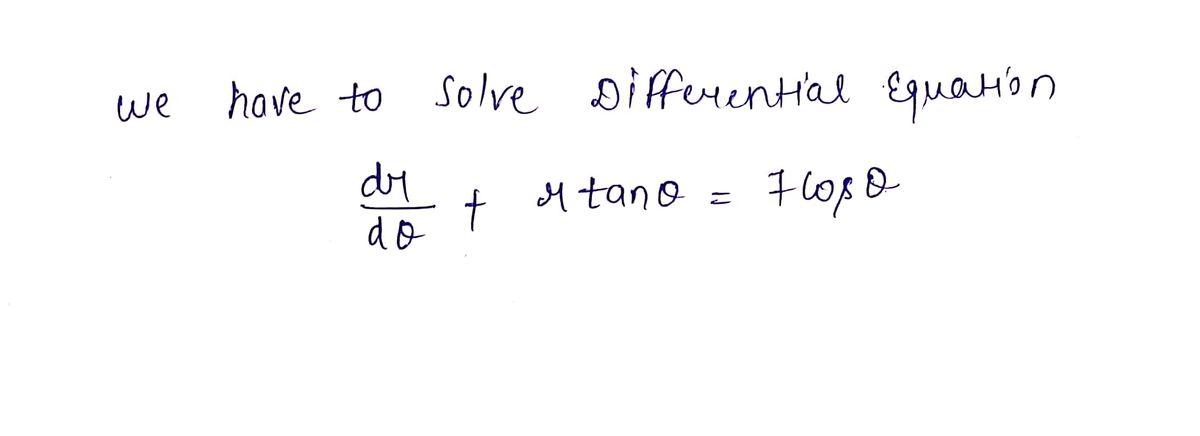 we have to solve Differential Equation
dr/dθ + r tanθ = 7cosθ